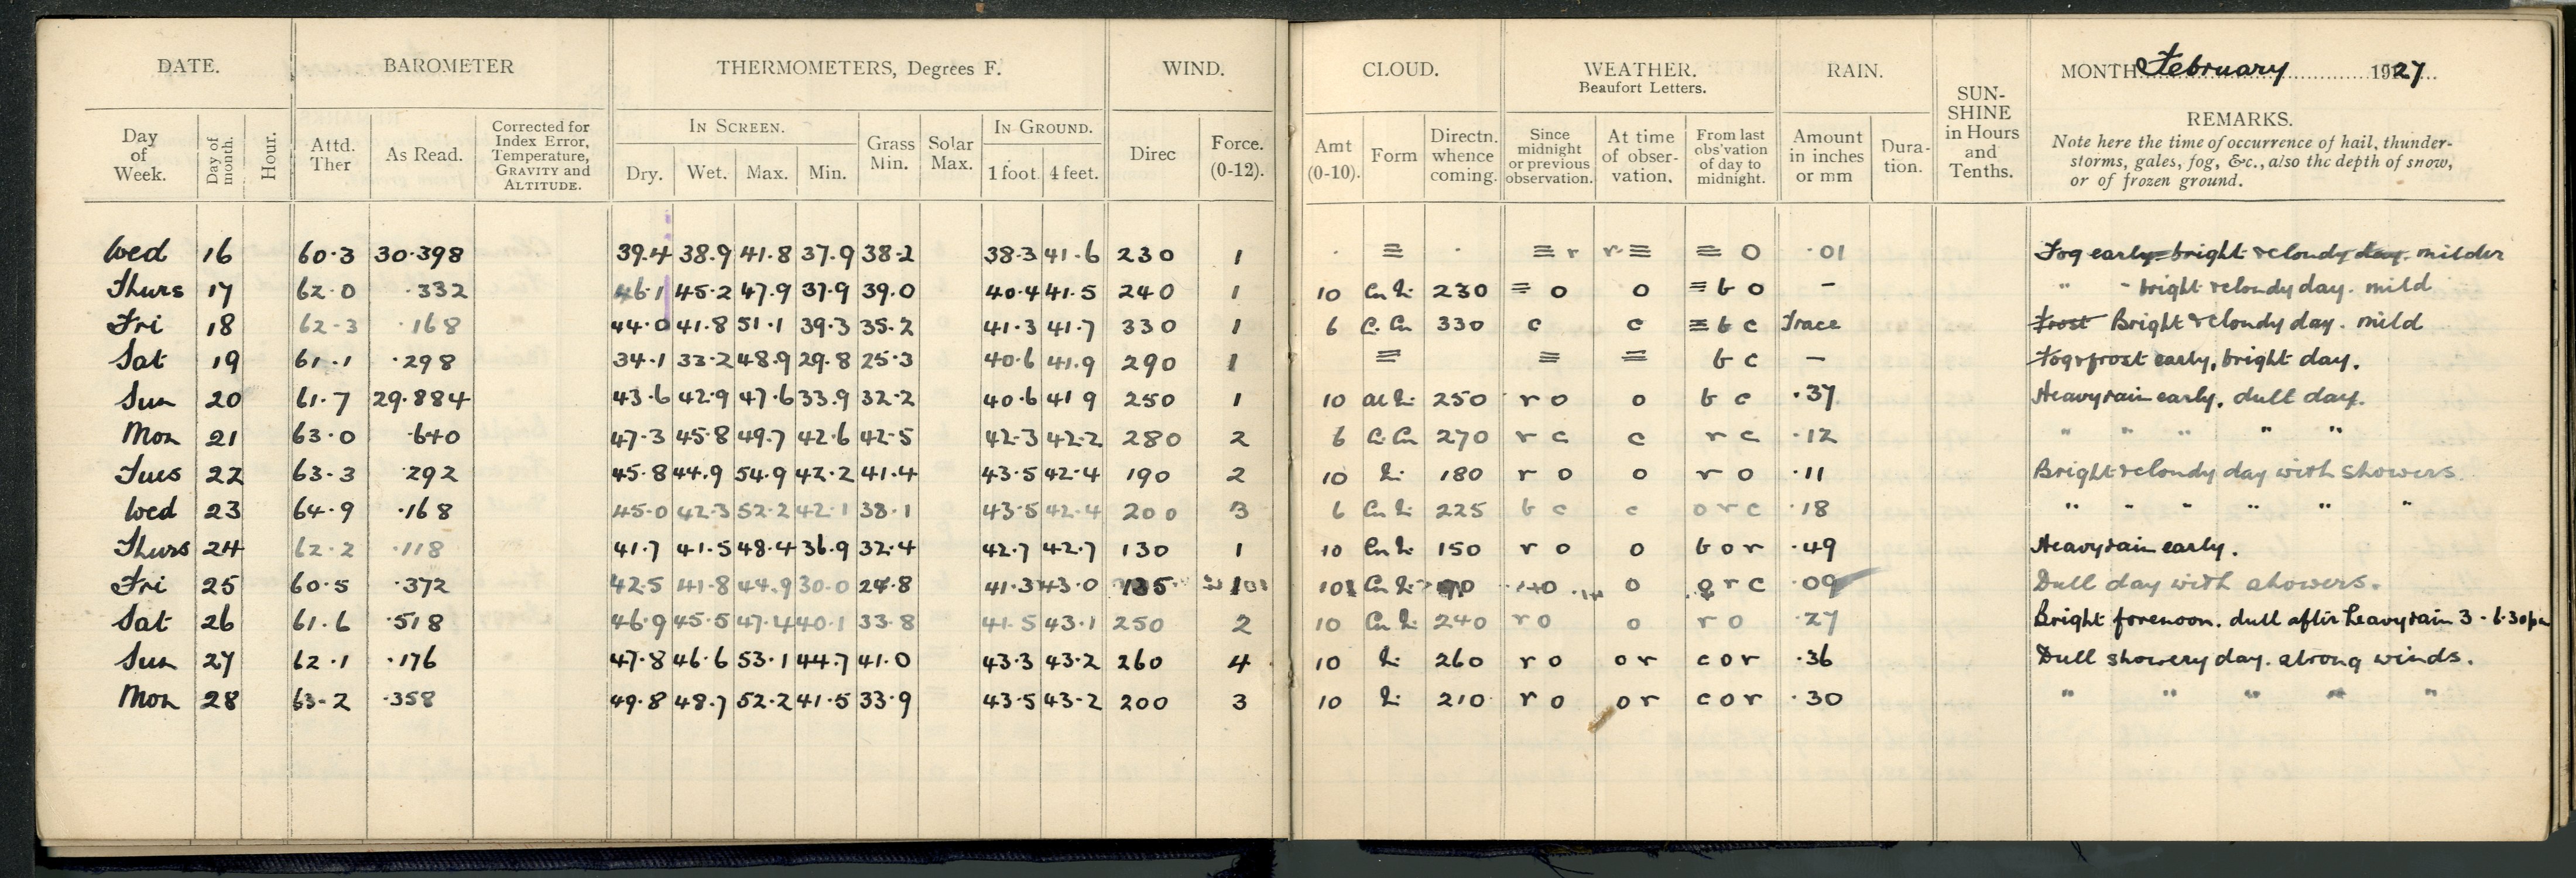 DATE. BAROMETER THERMOMETERS, Degrees F. WIND. CLOUD. WEATHER. Beaufort Letters. RAIN. SUN-SHINE in Hours and Tenths. MONTH February 1927
Day of Week. Day of month. Hour. Attd. Ther As Read. Corrected for Index Error, Temperature, GRAVITY and ALTITUDE. IN SCREEN. Dry. Wet. Max. Min. Grass Min. Solar Max. IN GROUND. 1 foot. 4 feet. Direc Force. (0-12). Amt (0-10). Form Directn. whence coming. Since midnight or previous observation. At time of obser-vation. From last obs'vation of day to midnight. Amount in inches or mm Dura-tion.
REMARKS.
Note here the time of occurrence of hail, thunder-
storms, gales, fog, &c., also the depth of snow,
or of frozen ground.
Wed 16 60.3 30.398 39.4 38.9 41.8 37.9 38.2 38.3 41.6 230 1 · ≡ · ≡ r r ≡ ≡ o .01 Fog early bright & cloudy day. milder
Thurs 17 62.0 .332 46.1 45.2 47.9 37.9 39.0 40.4 41.5 240 1 10 230 ≡ o o ≡ b o - " - bright & cloudy day. mild
Fri 18 62.3 .168 44.0 41.8 51.1 39.3 35.2 41.3 41.7 330 1 6 C. Cu 330 c c ≡ b c Trace Frost Bright & cloudy day. mild
Sat 19 61.1 .298 34.1 33.2 48.9 29.8 25.3 40.6 41.9 290 1 ≡ ≡ = b c - Fog & frost early, bright day.
Sun 20 61.7 29.884 43.6 42.9 47.6 33.9 32.2 40.6 41 9 250 1 10 250 r o o b c .37 Heavy rain early. dull day.
Mon 21 63.0 .640 47.3 45.8 49.7 42.6 42.5 42.3 42.2 280 2 6 C. Cu 270 r c c r c .12 " " " " "
Tues 22 63.3 .292 45.8 44.9 54.9 42.2 41.4 43.5 42.4 190 2 10 180 r o o r o .11 Bright & cloudy day with showers
Wed 23 64.9 .168 45.0 42.3 52.2 42.1 38.1 43.5 42.4 200 3 6 225 b c c o r c .18 " " " " " "
Thurs 24 62.2 .118 41.7 41.5 48.4 36.9 32.4 42.7 42.7 130 1 10 150 r o o b o r .49 Heavy rain early.
Fri 25 60.5 .372 42.5 41.8 44.9 30.0 24.8 41.3 43.0 135 1 10 o r c .09 Dull day with showers.
Sat 26 61.6 .518 46.9 45.5 47.4 40.1 33.8 41.5 43.1 250 2 10 240 r o o r o .27 Bright forenoon. dull after heavy rain 3 - 6.30pm
Sun 27 62.1 .176 47.8 46.6 53.1 44.7 41.0 43.3 43.2 260 4 10 260 r o o r c o r .36 Dull showery day. strong winds.
Mon 28 63.2 .358 49.8 48.7 52.2 41.5 33.9 43.5 43.2 200 3 10 210 r o o r c o r .30 " " " " "